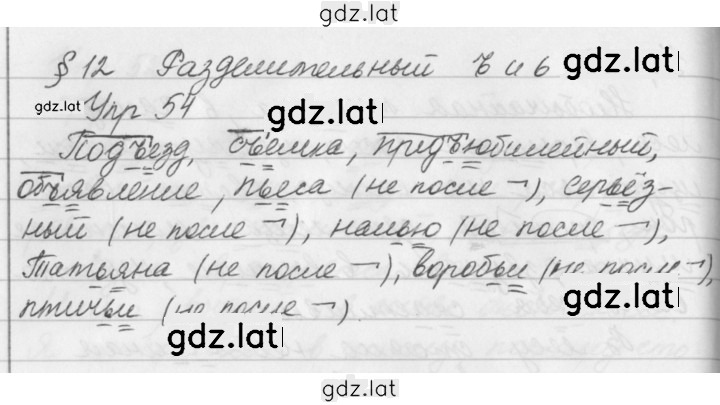 gdz.lat
§ 12 Разделительный ъ и ь
gdz.lat
gdz.lat
Упр 54
gdz.lat
Подъезд, съёмка, предъюбилейный,
объявление, пьеса (не после ¬), серьёз-
ный (не после ¬), налью (не после ¬),
Татьяна (не после ¬), воробьи (не после ¬),
gdz.lat
птичьи (не после ¬).
gdz.lat
gdz.lat